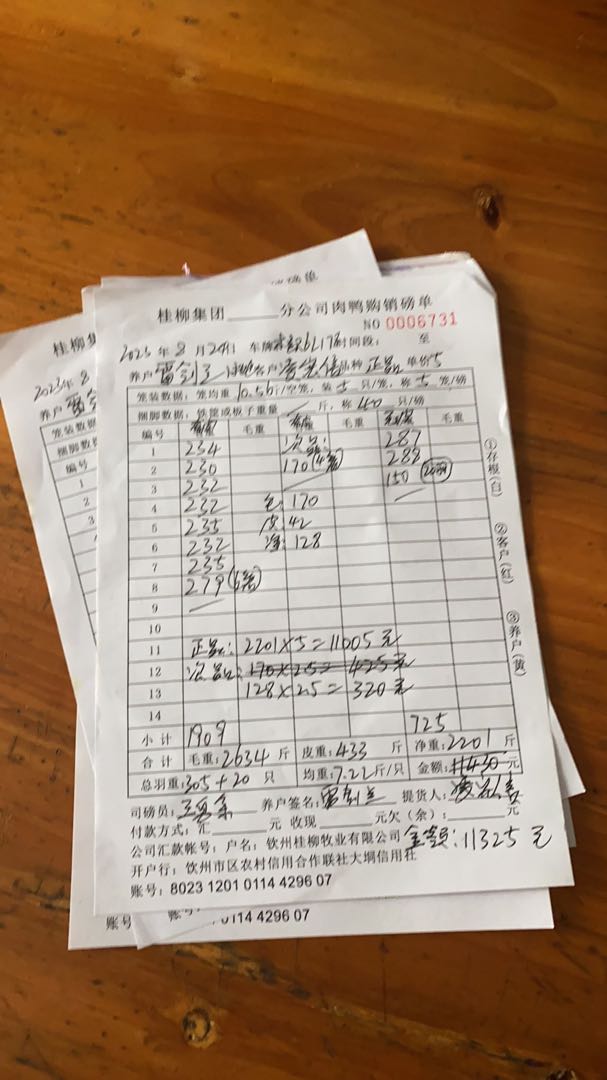 桂柳集团______分公司肉鸭购销磅单
NO 0006731
2023 年 8 月 24日 车牌 6217 时间段: 至
养户 客户 品种 正品 单价 5
笼装数据: 笼均重 10.56斤/空笼, 装 5 只/笼, 称 5 笼/磅
捆脚数据: 铁筐或板子重量 斤, 称 40 只/磅
编号 毛重 毛重 毛重
1 234 次品: 287
2 230 170(4笼) 288
3 232 150
4 232 毛: 170
5 235 皮: 42
6 232 净: 128
7 235
8 279(6笼)
9
10
11 正品: 2201×5=11005元
12 次品: 170×2.5=425元
13 128×2.5=320元
14
小计 1909 725
合计 毛重:2634 斤 皮重:433 斤 净重:2201 斤
总羽重:305+20 只 均重:7.22斤/只 金额:11430元
司磅员: 养户签名: 提货人:
付款方式: 汇______元 收现______元欠(余):______元
公司汇款帐号: 户名: 钦州桂柳牧业有限公司 金额:11325 元
开户行: 钦州市区农村信用合作联社大垌信用社
账号: 8023 1201 0114 4296 07
①存根(白)
②客户(红)
③养户(黄)
磅单
桂柳集
2023年8
养户
笼装数据
捆脚数据
编号
1
2
3
4
5
账号
账号:
0114 4296 07